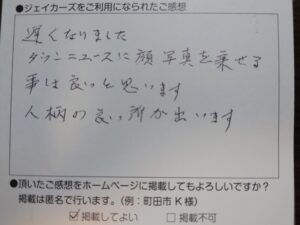 ●ジェイカーズをご利用になられたご感想
遅くなりました
タウンニュースに顔写真を乗せる
事は良いと思います
人柄の良い所が出います
●頂いたご感想をホームページに掲載してもよろしいですか?
掲載は匿名で行います。(例：町田市K様)
☑掲載してよい □掲載不可